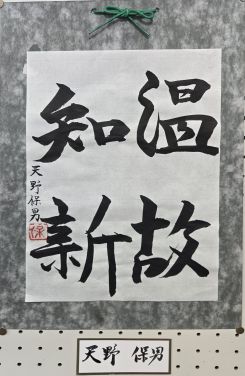 温故
知新
天野保男
天野 保男